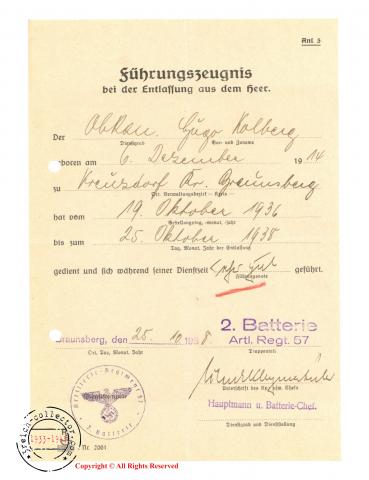 Anl. 5
Führungszeugnis
bei der Entlassung aus dem Heer.
Der Obkan. Hugo Kolberg
Dienstgrad Vor- und Zuname
geboren am 6. Dezember 1914
zu Kreuzdorf Kr. Braunsberg
Ort, Verwaltungsbezirk – Kreis
hat vom 19. Oktober 1936
bis zum 25. Oktober 1938
Tag, Monat, Jahr der Entlassung
gedient und sich während seiner Dienstzeit sehr gut geführt.
Führungsnote
Braunsberg, den 25. 10. 1938.
Ort, Tag, Monat, Jahr
2. Batterie
Artl. Regt. 57
Truppenteil
Unterschrift des usw. Chefs
Hauptmann u. Batterie-Chef.
Dienstgrad und Dienststellung
Artillerie-Regiment 57
2. Batterie
Nr. 2001
treich-collector.com
1933-1945
Copyright © All Rights Reserved